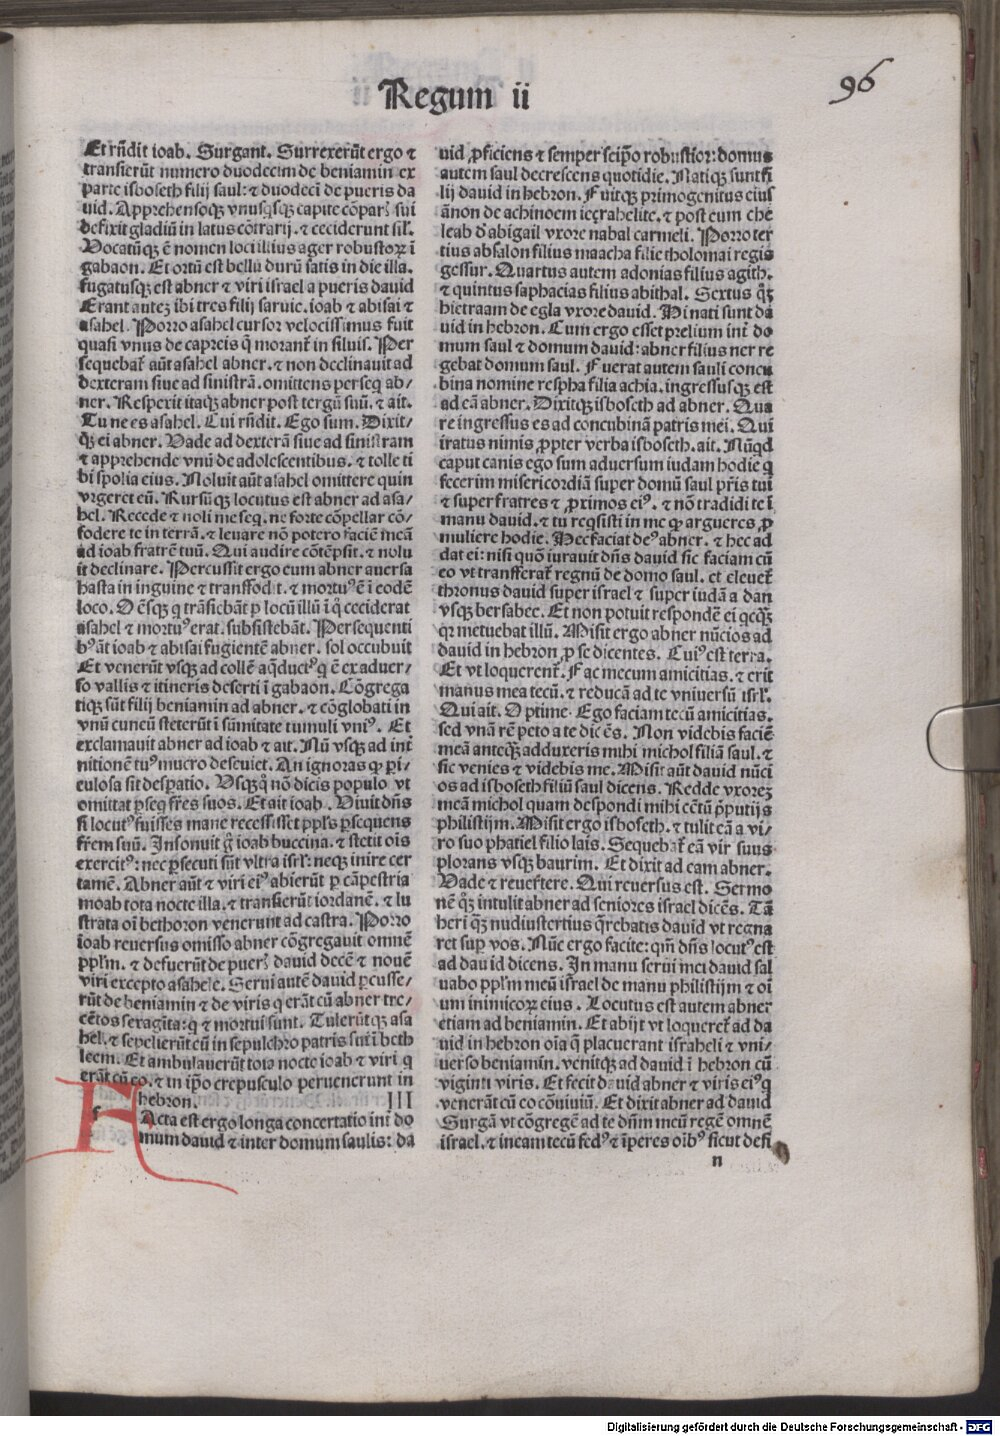 Regum ii
96
Et rñdit ioab. Surgant. Surrexerũt ergo ⁊
transierũt numero duodecim de beniamin ex
parte isboseth filij saul: ⁊ duodeci de pueris da
uid. Apprehensoqꝫ vnusqsqꝫ capite cõparꝭ sui
defixit gladiũ in latus cõtrarij. ⁊ ceciderunt sil'.
Vocatũqꝫ ẽ nomen loci illius ager robustoꝝ ĩ
gabaon. Et ortũ est bellũ durũ satis in die illa.
fugatusqꝫ est abner ⁊ viri israel a pueris dauid
Erant autez ibi tres filij saruie. ioab ⁊ abisai ⁊
asahel. Porro asahel cursor velocissimus fuit
quasi vnus de capreis q̃ morant̃ in siluis. Per
sequebat̃ aũt asahel abner. ⁊ non declinauit ad
dexteram siue ad sinistrã. omittens perseq ab/
ner. Respexit itaqꝫ abner post tergũ suũ. ⁊ ait.
Tu ne es asahel. Cui rñdit. Ego sum. Dixit/
qꝫ ei abner. Vade ad dexterã siue ad sinistram
⁊ apprehende vnũ de adolescentibus. ⁊ tolle ti
bi spolia eius. Noluit aũt asahel omittere quin
vrgeret eũ. Rursũqꝫ locutus est abner ad asa/
hel. Recede ⁊ noli me seq. ne forte cõpellar cõ/
fodere te in terrã. ⁊ leuare nõ potero faciẽ meã
ad ioab fratrẽ tuũ. Qui audire cõtẽpsit. ⁊ nolu
it declinare. Percussit ergo eum abner auersa
hasta in inguine ⁊ transfodit. ⁊ mortuꝰ ẽ ĩ eodẽ
loco. Oẽsqꝫ q trãsiebãt ꝑ locũ illũ ĩ q̃ ceciderat
asahel ⁊ mortuꝰ erat. subsistebãt. Persequenti
bꝰ ãt ioab ⁊ abisai fugientẽ abner. sol occubuit
Et venerũt vsqꝫ ad collẽ aq̃ductꝰ q ẽ exaduer/
so vallis ⁊ itineris deserti ĩ gabaon. Cõgrega
tiqꝫ sũt filij beniamin ad abner. ⁊ cõglobati in
vnũ cuneũ steterũt ĩ sũmitate tumuli vniꝰ. Et
exclamauit abner ad ioab ⁊ ait. Nũ vsqꝫ ad int̃
nitionẽ tuꝰ mucro deseuiet. An ignoras qꝙ ꝑi/
culosa sit desꝑatio. Vsqꝫq̃ nõ dicis populo vt
omittat ꝑseq fr̃es suos. Et ait ioab. Viuit dñs
si locutꝰ fuisses mane recessisset ppl's ꝑsequens
fr̃em suũ. Insonuit g̃ ioab buccina. ⁊ stetit oĩs
exercitꝰ: nec ꝑsecuti sũt vltra isrl': neqꝫ inire cer
tamẽ. Abner aũt ⁊ viri eiꝰ abierũt ꝑ cãpestria
moab tota nocte illa. ⁊ transierũt iordanẽ. ⁊ lu
strata oĩ bethoron venerunt ad castra. Porro
ioab reuersus omisso abner cõgregauit omnẽ
ppl'm. ⁊ defuerũt de puerꝭ dauid decẽ ⁊ nouẽ
viri excepto asahele. Serui autẽ dauid ꝑcusse/
rũt de beniamin ⁊ de viris q erãt cũ abner tre/
cẽtos sexagĩta: q ⁊ mortui sunt. Tulerũtqꝫ asa
hel. ⁊ sepelierũt eũ in sepulchro patris sui ĩ beth
leem. Et ambulauerũt tota nocte ioab ⁊ viri q
erãt cũ eo. ⁊ in ip̃o crepusculo peruenerunt in
hebron. III
F f Acta est ergo longa concertatio int̃ do
mum dauid ⁊ inter domum saulis: da
uid ꝓficiens ⁊ semper seip̃o robustior: domus
autem saul decrescens quotidie. Natiqꝫ sunt fi
lij dauid in hebron. Fuitqꝫ primogenitus eius
ãnon de achinoem iezrahelite. ⁊ post eum che
leab d' abigail vxore nabal carmeli. Porro ter
tius absalon filius maacha filie tholomai regis
gessur. Quartus autem adonias filius agith.
⁊ quintus saphacias filius abithal. Sextus q̃ꝫ
hietraam de egla vxore dauid. Hi nati sunt da
uid in hebron. Cum ergo esset prelium int̃ do
mum saul ⁊ domum dauid: abner filius ner re
gebat domum saul. Fuerat autem sauli concu
bina nomine respha filia achia. ingressusqꝫ est
ad eã abner. Dixitqꝫ isboseth ad abner. Qua
re ingressus es ad concubinã patris mei. Qui
iratus nimis ꝓpter verba isboseth. ait. Nũqd
caput canis ego sum aduersum iudam hodie q
fecerim misericordiã super domũ saul pr̃is tui
⁊ super fratres ⁊ ꝓximos eiꝰ. ⁊ nõ tradidi te ĩ
manu dauid. ⁊ tu reqsisti in me qꝙ argueres ꝓ
muliere hodie. Hec faciat deꝰ abner. ⁊ hec ad
dat ei: nisi quõ iurauit dñs dauid sic faciam cũ
eo vt transferat̃ regnũ de domo saul. et eleuet̃
thronus dauid super israel ⁊ super iudã a dan
vsqꝫ bersabee. Et non potuit respondẽ ei qcqꝫ
qꝛ metuebat illũ. Misit ergo abner nũcios ad
dauid in hebron ꝓ se dicentes. Cuiꝰ est terra.
Et vt loquerent̃. Fac mecum amicitias. ⁊ erit
manus mea tecũ. ⁊ reducã ad te vniuersũ isrl'.
Qui ait. Optime. Ego faciam tecũ amicitias.
sed vnã rẽ peto a te dicẽs. Non videbis faciẽ
meã anteqꝫ adduxeris mihi michol filiã saul. ⁊
sic venies ⁊ videbis me. Misit aũt dauid nũci
os ad isboseth filiũ saul dicens. Redde vxorez
meã michol quam despondi mihi cẽtũ p̃putijs
philistijm. Misit ergo isboseth. ⁊ tulit eã a vi/
ro suo phatiel filio lais. Sequebat̃ eã vir suus
plorans vsqꝫ baurim. Et dixit ad eam abner.
Vade ⁊ reuertere. Qui reuersus est. Sermo
nẽ q̃ꝫ intulit abner ad seniores israel dicẽs. Tã
heri q̃ꝫ nudiustertius q̃rebatis dauid vt regna
ret suꝑ vos. Nũc ergo facite: qm̃ dñs locutꝰ est
ad dauid dicens. In manu serui mei dauid sal
uabo ppl'm meũ isrãel de manu philistijm ⁊ oĩ
um inimicoꝝ eius. Locutus est autem abner
etiam ad beniamin. Et abijt vt loqueret̃ ad da
uid in hebron oĩa q̃ placuerant israheli ⁊ vni/
uerso beniamin. venitqꝫ ad dauid ĩ hebron cũ
viginti viris. Et fecit dauid abner ⁊ viris eiꝰ q
venerãt cũ eo cõuiuiũ. Et dixit abner ad dauid
Surgã vt cõgregẽ ad te dñm meũ regẽ omnẽ
israel. ⁊ ineam tecũ fedꝰ ⁊ ĩperes oĩbꝰ sicut desi
n
Digitalisierung gefördert durch die Deutsche Forschungsgemeinschaft - DFG